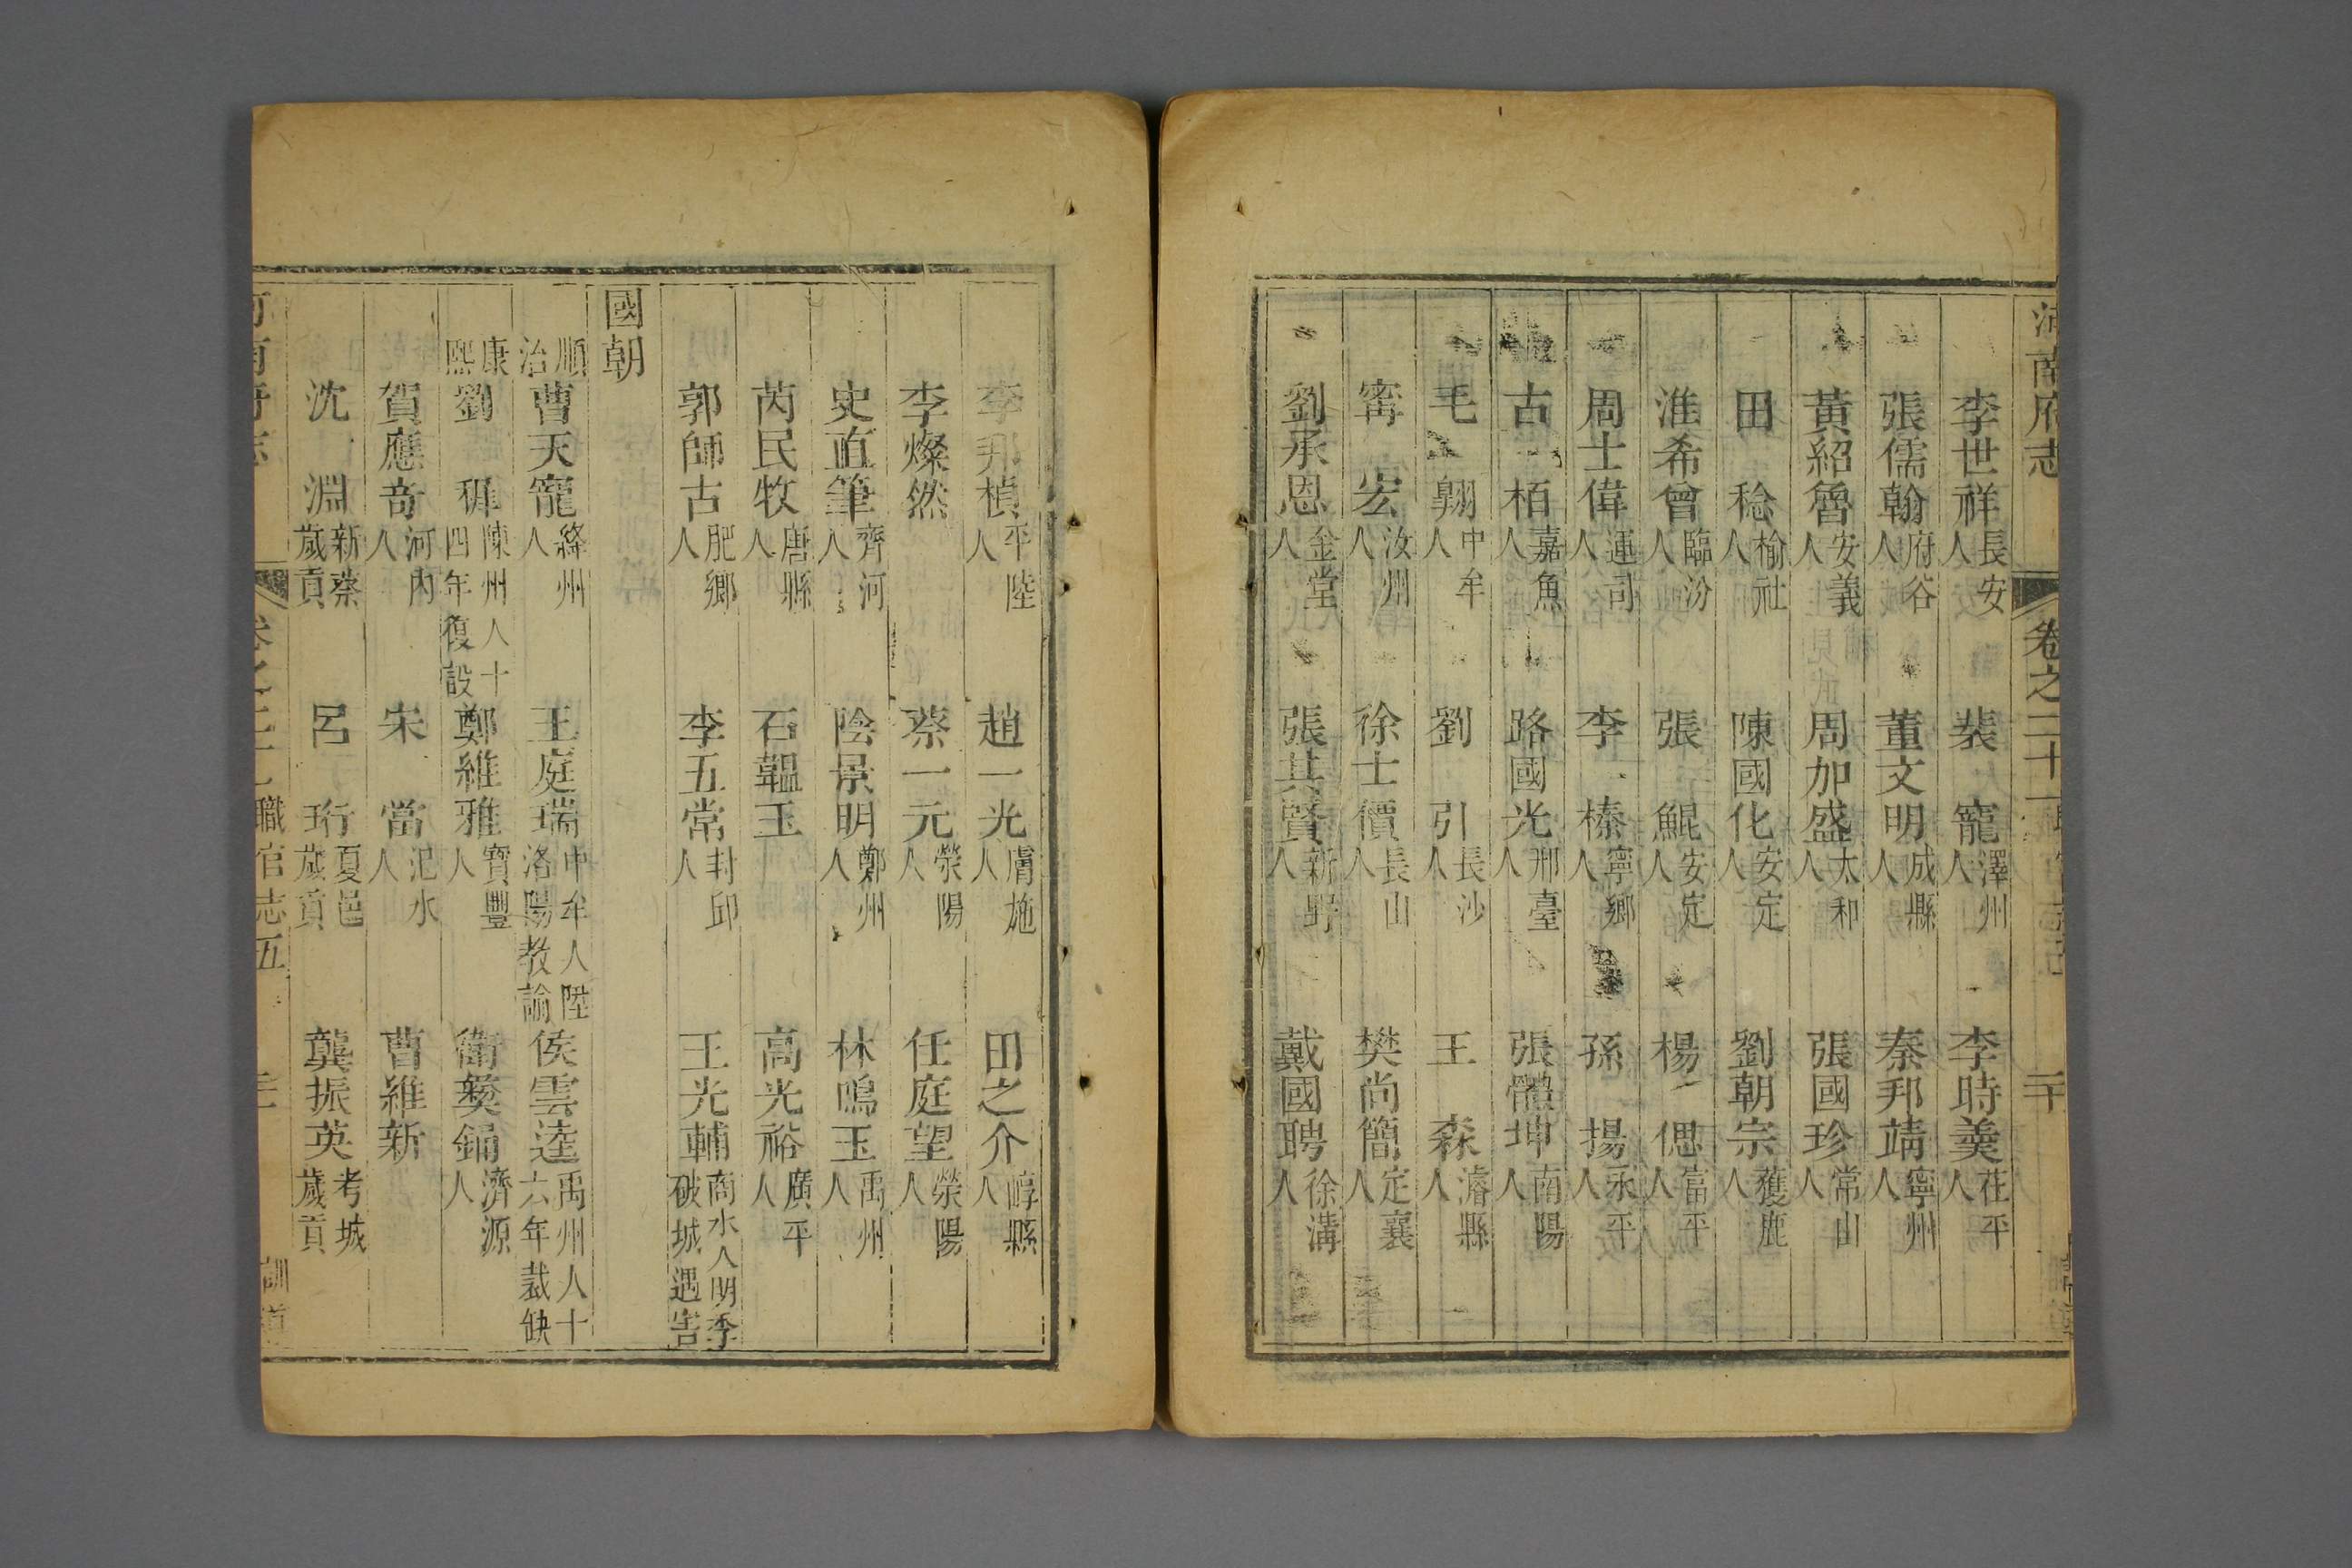 河南府志 卷之二十一 職官志五 二十 訓導
李世祥長安人 裴寵澤州人 李時羹茌平人
張儒翰府谷人 董文明成縣人 秦邦靖寧州人
黃紹魯安義人 周加盛太和人 張國珍常山人
田稔榆社人 陳國化安定人 劉朝宗獲鹿人
淮希曾臨汾人 張鯤安定人 楊偲富平人
周士偉運司人 李榛寧鄉人 孫揚永平人
古栢嘉魚人 路國光邢臺人 張體坤南陽人
毛翺中牟人 劉引長沙人 王森濬縣人
甯宏汝州人 徐士價長山人 樊尚簡定襄人
劉承恩金堂人 張其賢新野人 戴國聘徐溝人
李邦楨平陸人 趙一光膚施人 田之介崞縣人
李燦然 蔡一元滎陽人 任庭望滎陽人
史直筆齊河人 陰景明鄭州人 林鳴玉禹州人
芮民牧唐縣人 石韞玉 高光裕廣平人
郭師古肥鄉人 李五常封邱人 王光輔商水人明季破城遇害
國朝
順治 曹天寵絳州人 王庭瑞中牟人陞洛陽教諭 侯雲逵禹州人十六年裁缺
康熙 劉 陳州人十四年復設 鄭維雅寶豐人 衛蘷鏞濟源人
賀應奇河內人 宋當汜水人 曹維新
沈淵新蔡歲貢 呂珩夏邑歲貢 龔振英考城歲貢
河南府志 卷之二十一 職官志五 二十一 訓導